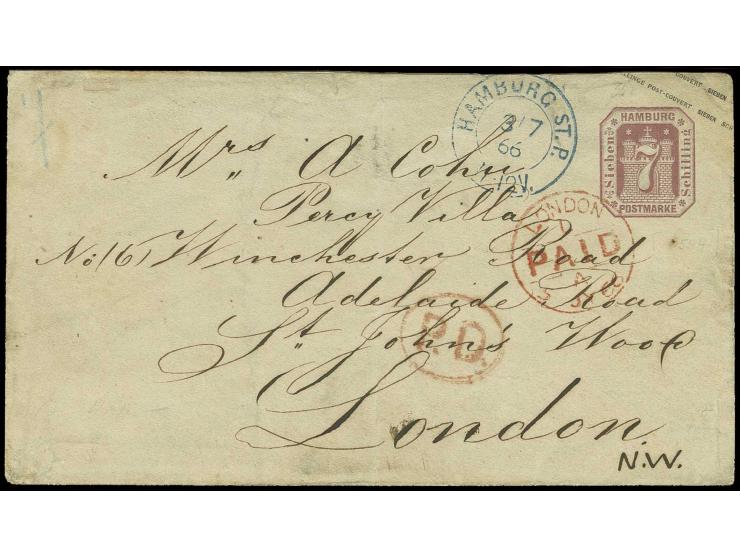 7
HAMBURG ST. P.
3/7
66
COUVERT SIEBEN
LLINGE POST-COUVERT SIEBEN SCH
HAMBURG
Sieben
7
Schilling
POSTMARKE
LONDON
PAID
P.D.
Mrs A Cohn
Percy Villa
No: (6) Winchester Road
Adelaide Road
St John's Wood
London
N.W.